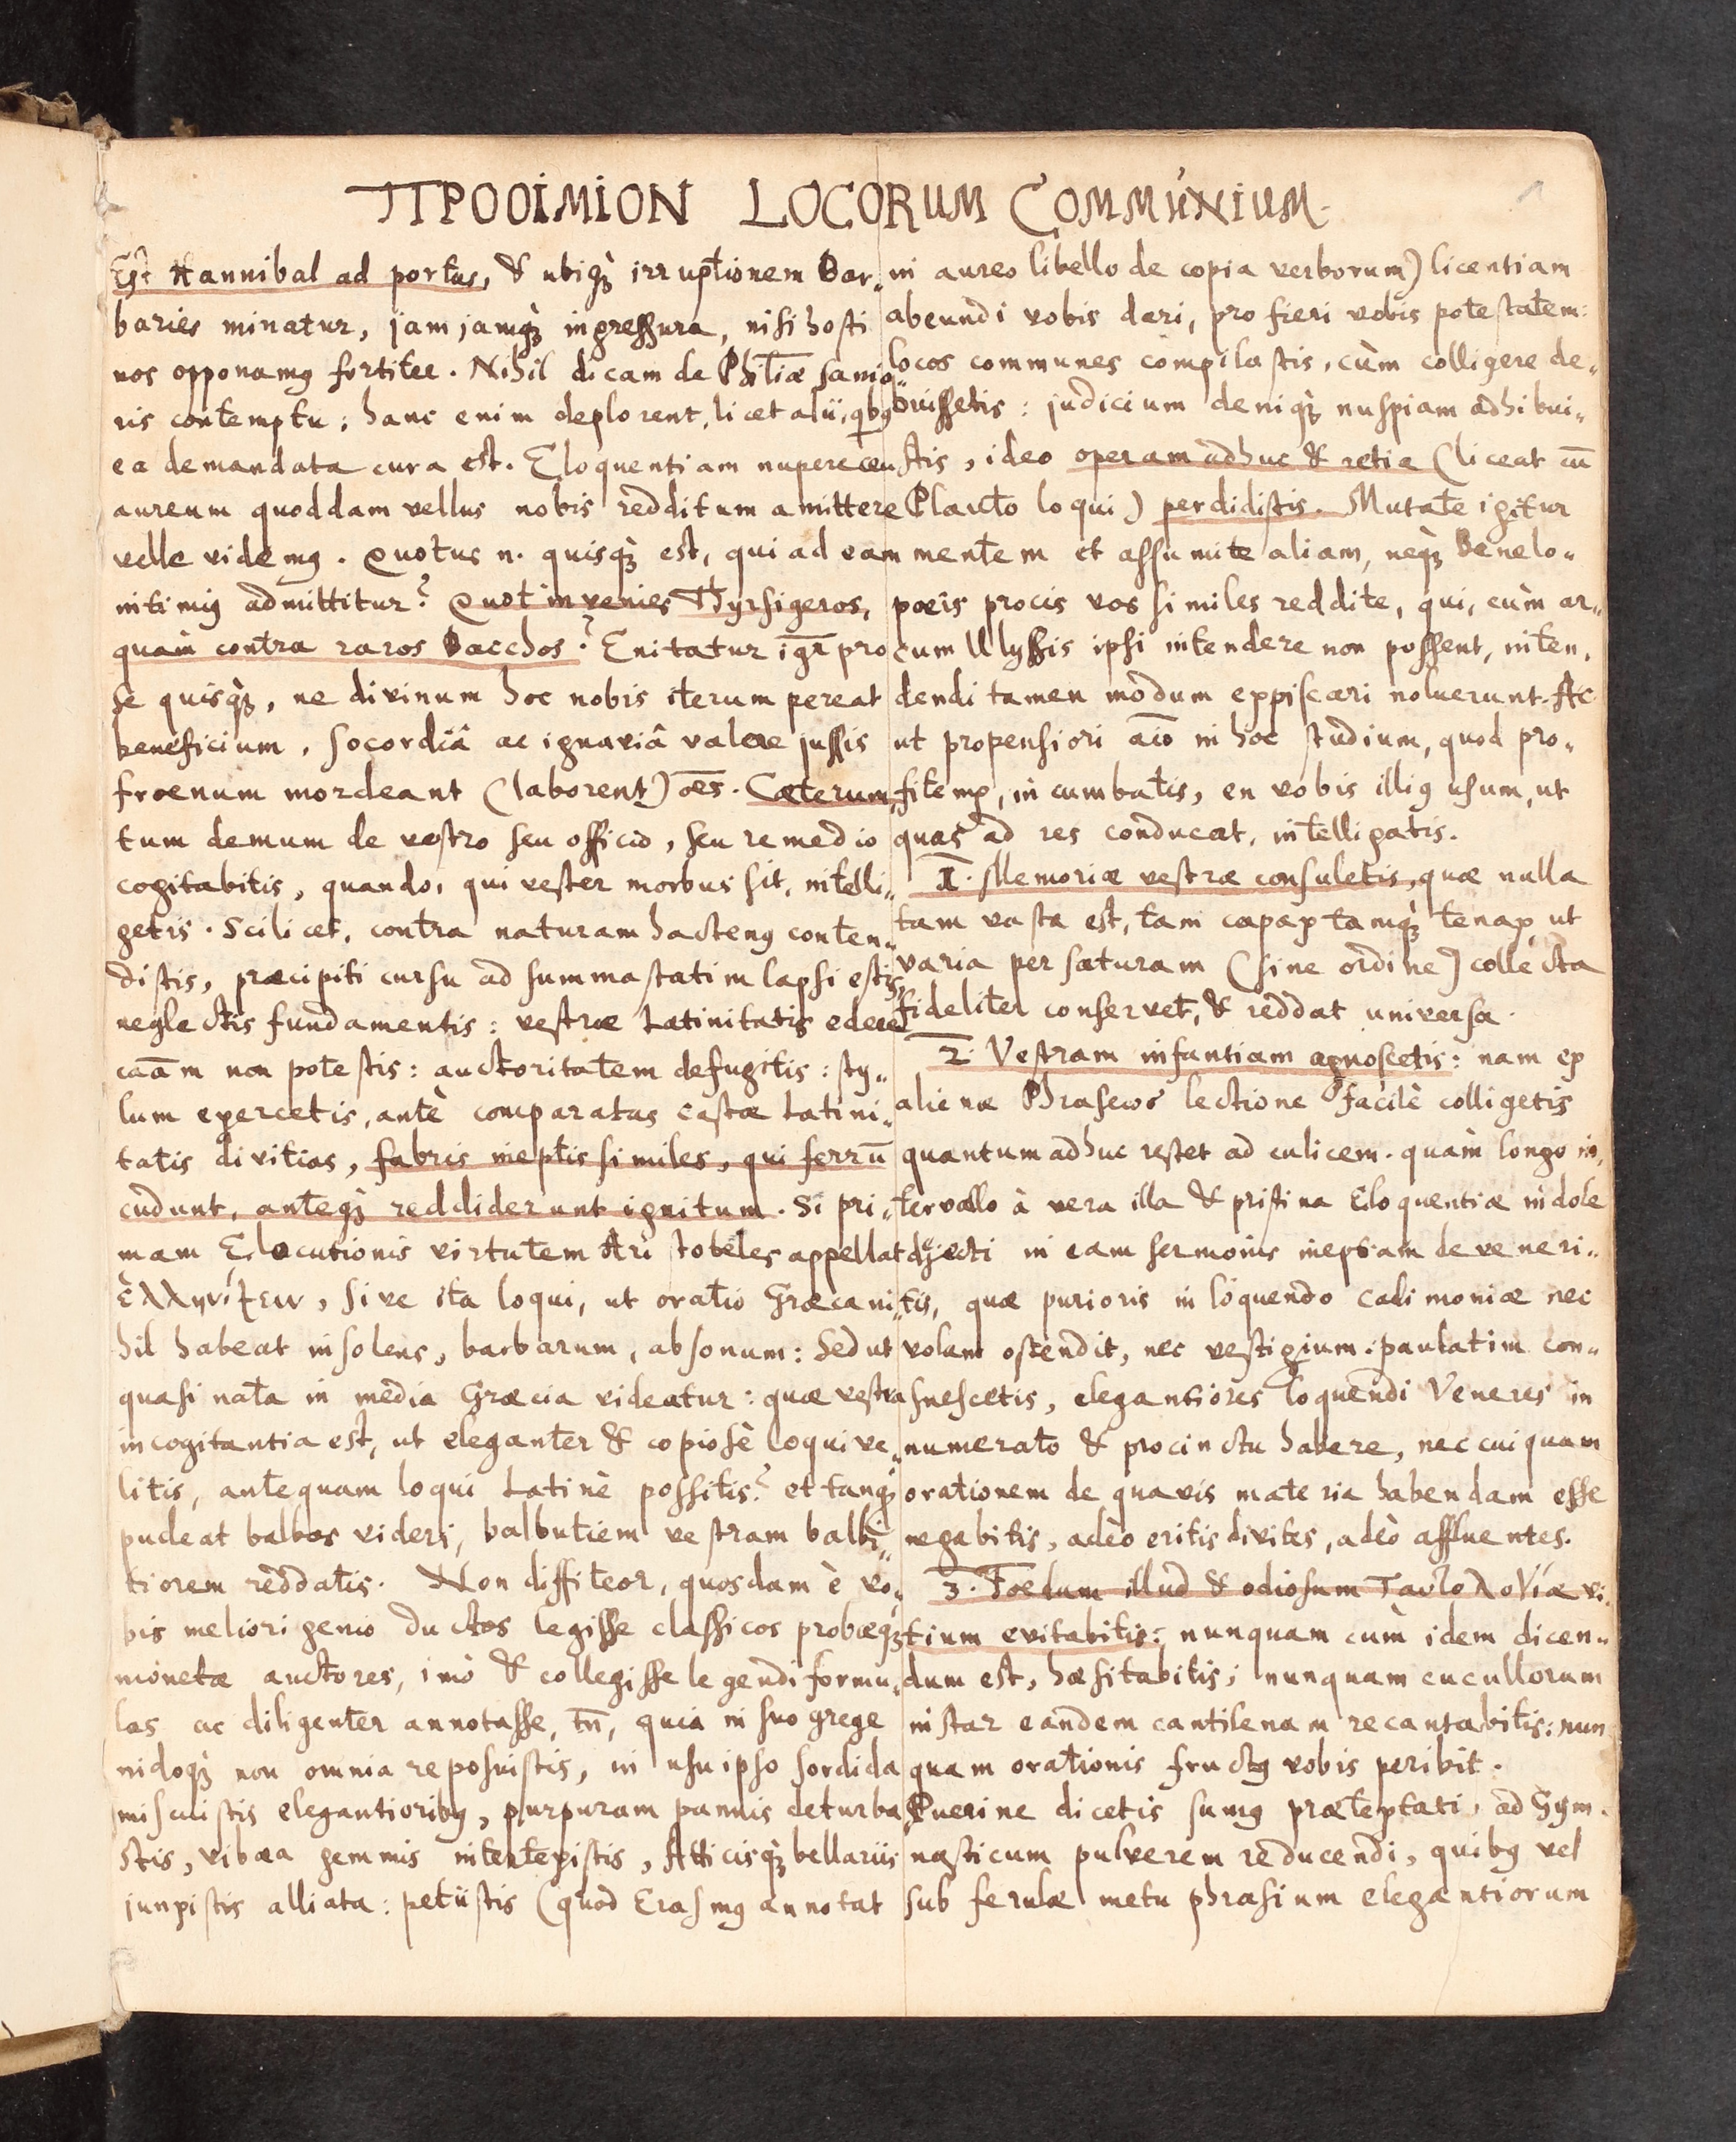 ΠΡΟΟΙΜΙΟΝ LOCORUM COMMUNIUM.
Est Hannibal ad portas, & ubiqꝫ irruptionem Bar„
baries minatur, jam jamqꝫ ingressura, nisi hosti
nos opponamꝰ fortiter. Nihil dicam de Philiæ sanio„
ris contemptu; hanc enim deplorent, licet alii, qbꝰ
ea demandata cura est. Eloquentiam nuper ceu
aureum quoddam vellus nobis redditum amittere
velle videmꝰ. Quotus n. quisqꝫ est, qui ad eam
nitimꝰ admittitur? Quot invenies Thyrsigeros,
quàm contra raros Bacchos? Enitatur igr̄ pro
se quisqꝫ, ne divinum hoc nobis iterum pereat
beneficium, socordiâ ac ignaviâ valere jussis
froenum mordeant (laborent) oēs. Cæterum
tum demum de vestro seu officio, seu remedio
cogitabitis, quando, qui vester morbus sit, intelli„
getis. Scilicet, contra naturam hactenꝰ conten„
distis, præcipiti cursu ad summa statim lapsi estis,
neglectis fundamentis: vestræ Latinitatis edere
caām non potestis: auctoritatem defugitis: sty„
lum exercetis, antè comparatas castæ Latini„
tatis divitias, fabris ineptis similes, qui ferrū
cudunt, anteqꝫ reddiderunt ignitum. Si pri„
mam Elocutionis virtutem Aristoteles appellat
ἑλληνίζειν, sive ita loqui, ut oratio Græca ni„
hil habeat insolens, barbarum, absonum: sed ut
quasi nata in media Græcia videatur: quæ vestra
incogitantia est, ut eleganter & copiosè loqui ve„
litis, antequam loqui Latinè possitis? et tanqꝫ
pudeat balbos videri, balbutiem vestram balbu„
tiorem reddatis. Non diffiteor, quosdam è vo„
bis meliori genio ductos legisse classicos probæqꝫ
monetæ auctores, imò & collegisse legendi formu„
las ac diligenter annotasse, tn̄, quia in suo grege
nidoqꝫ non omnia reposuistis, in usu ipso sordida
miscuistis elegantioribꝰ, purpuram pannis deturba„
stis, vibæa gemmis intertexistis, Atticisqꝫ bellariis
junxistis alliata: petiistis (quod Erasmꝰ annotat
in aureo libello de copia verborum) licentiam
abeundi vobis dari, pro fieri vobis potestatem:
locos communes compilastis, cùm colligere de„
buissetis: judicium deniqꝫ nuspiam adhibui„
stis, ideo operam adhuc & retia (liceat cū
Plauto loqui) perdidistis. Mutate igitur
mentem et assumite aliam, neqꝫ Benelo„
poeis procis vos similes reddite, qui, cùm ar„
cum Ulyssis ipsi intendere non possent, inten„
dendi tamen modum expiscari noluerunt. Ac
ut propensiori aīo in hoc studium, quod pro„
fitemꝰ, incumbatis, en vobis illiꝰ usum, ut
quas ad res conducat, intelligatis.
1. Memoriæ vestræ consuletis, quæ nulla
tam vasta est, tam capax tamqꝫ tenax, ut
varia per saturam (sine ordine) collecta
fideliter conservet, & reddat universa.
2. Vestram infantiam agnoscetis: nam ex
alienæ Phraseωs lectione facilè colligetis
quantum adhuc restet ad culicem. quàm longo in„
tervallo à vera illa & pristina Eloquentiæ indole
dejecti in eam sermonis ineptiam deveneri„
tis, quæ purioris in loquendo cadimoniæ nec
volam ostendit, nec vestigium: paulatim con„
suescetis, elegantiores loquendi Veneres in
numerato & procinctu habere, nec cuiquam
orationem de quavis materia habendam esse
negabitis, adeò eritis divites, adeò affluentes.
3. Foedum illud & odiosum Ταυτολογίæ vi„
tium evitabitis: nunquam cùm idem dicen„
dum est, hæsitabitis; nunquam cucullorum
instar eandem cantilenam recantabitis: nun
quam orationis fructꝰ vobis peribit.
Puerine dicetis sumꝰ prætextati, ad Gym„
nasticum pulverem reducendi, quibꝰ vel
sub ferulæ metu phrasium elegantiorum